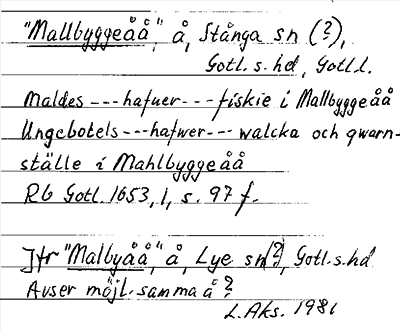 "Mallbyggeåå", å, Stånga sn (?),
Gotl. s. hd, Gotl. l.
Maldes ---hafuer--- fiskie i Mallbyggeåå
Ungebotels---hafwer--- walcka och qwarn-
ställe i Mahlbyggeåå
Rb Gotl. 1653, 1, s. 97 f.
Jfr "Malbyåå", å, Lye sn(?), Gotl. s. hd
Avser möjl. samma å?
L. Aks. 1981